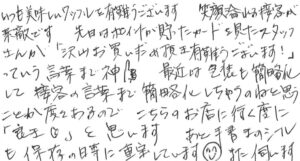 いつも美味しいタッフルを有難うございます 笑顔で接客が
素敵です 先日はポイントが貯ったカードを見たスタッフ
さんが「沢山お買い求め頂き有難うございます!」
っていう言葉まで神 最近は包装も簡略化
して 接客の言葉まで簡略化しちゃうのはと思う
ことが度々あるので こちらのお店に行く度に
「 と思います あと手書きのシール
も保存の目安に重宝しています また伺います